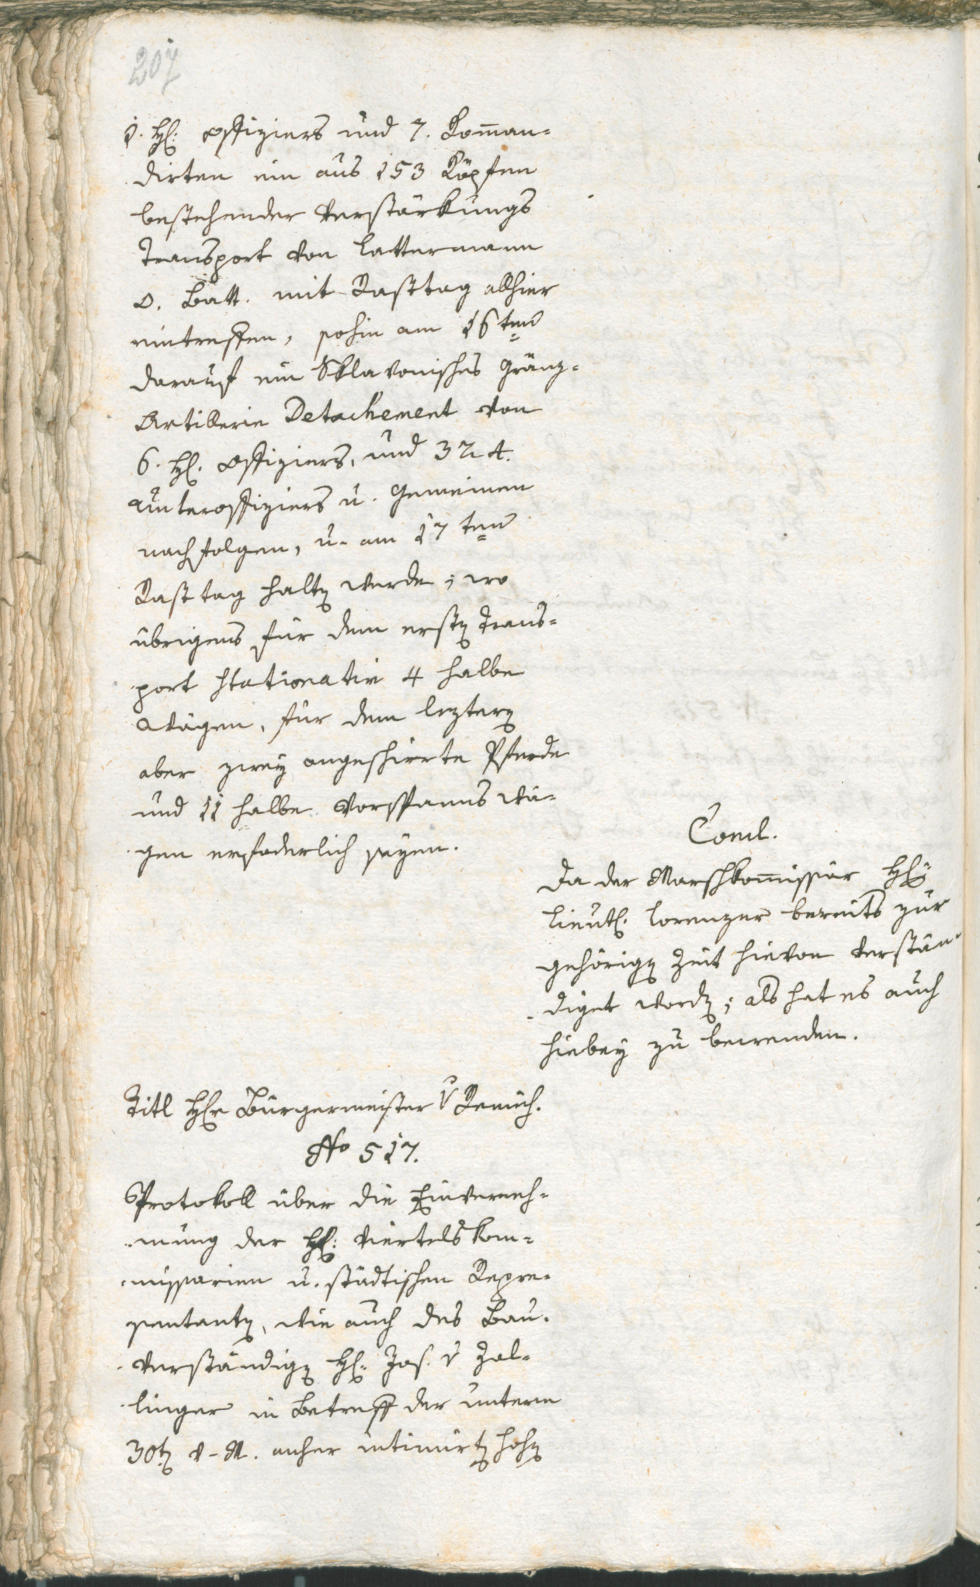 207
1. H: Offiziers und 7. Koman=
dirten ein aus 153 Köpfen
bestehender Verstärkungs
Transport von Lattermann
D. Batt. mit Rasttag allhier
eintreffen, sohin am 16ten
darauf ein Sklavonisches Gränz=
Artillerie Detachement von
6. H. Offiziers, und 324.
Unteroffiziers u. Gemeinen
nachfolgen, u. am 17ten
Rasttag halten werde; wo
übrigens für dem ersten Trans=
port stationatim 4 halbe
Wägen, für dem leztern
aber zwey angeschirrte Pferde
und 11 halbe Vorspanns Wä=
gen erfoderlich seyen.
Concl.
Da der Marschkommissär Hr
Lieut. Lorenzer bereits zur
gehörigen Zeit hievon verstän=
diget worden; als hat es auch
hiebey zu bewenden.
Titl Hr Bürgermeister v Remich.
No 517.
Protokoll über die Einverneh=
mung der H: Viertelskom=
missarien u. städtischen Reprä=
sentanten, wie auch des Bau=
verständigen H. Jos. v Zal=
linger in Betreff der unterm
30ten v. M. anher intimirten hohen